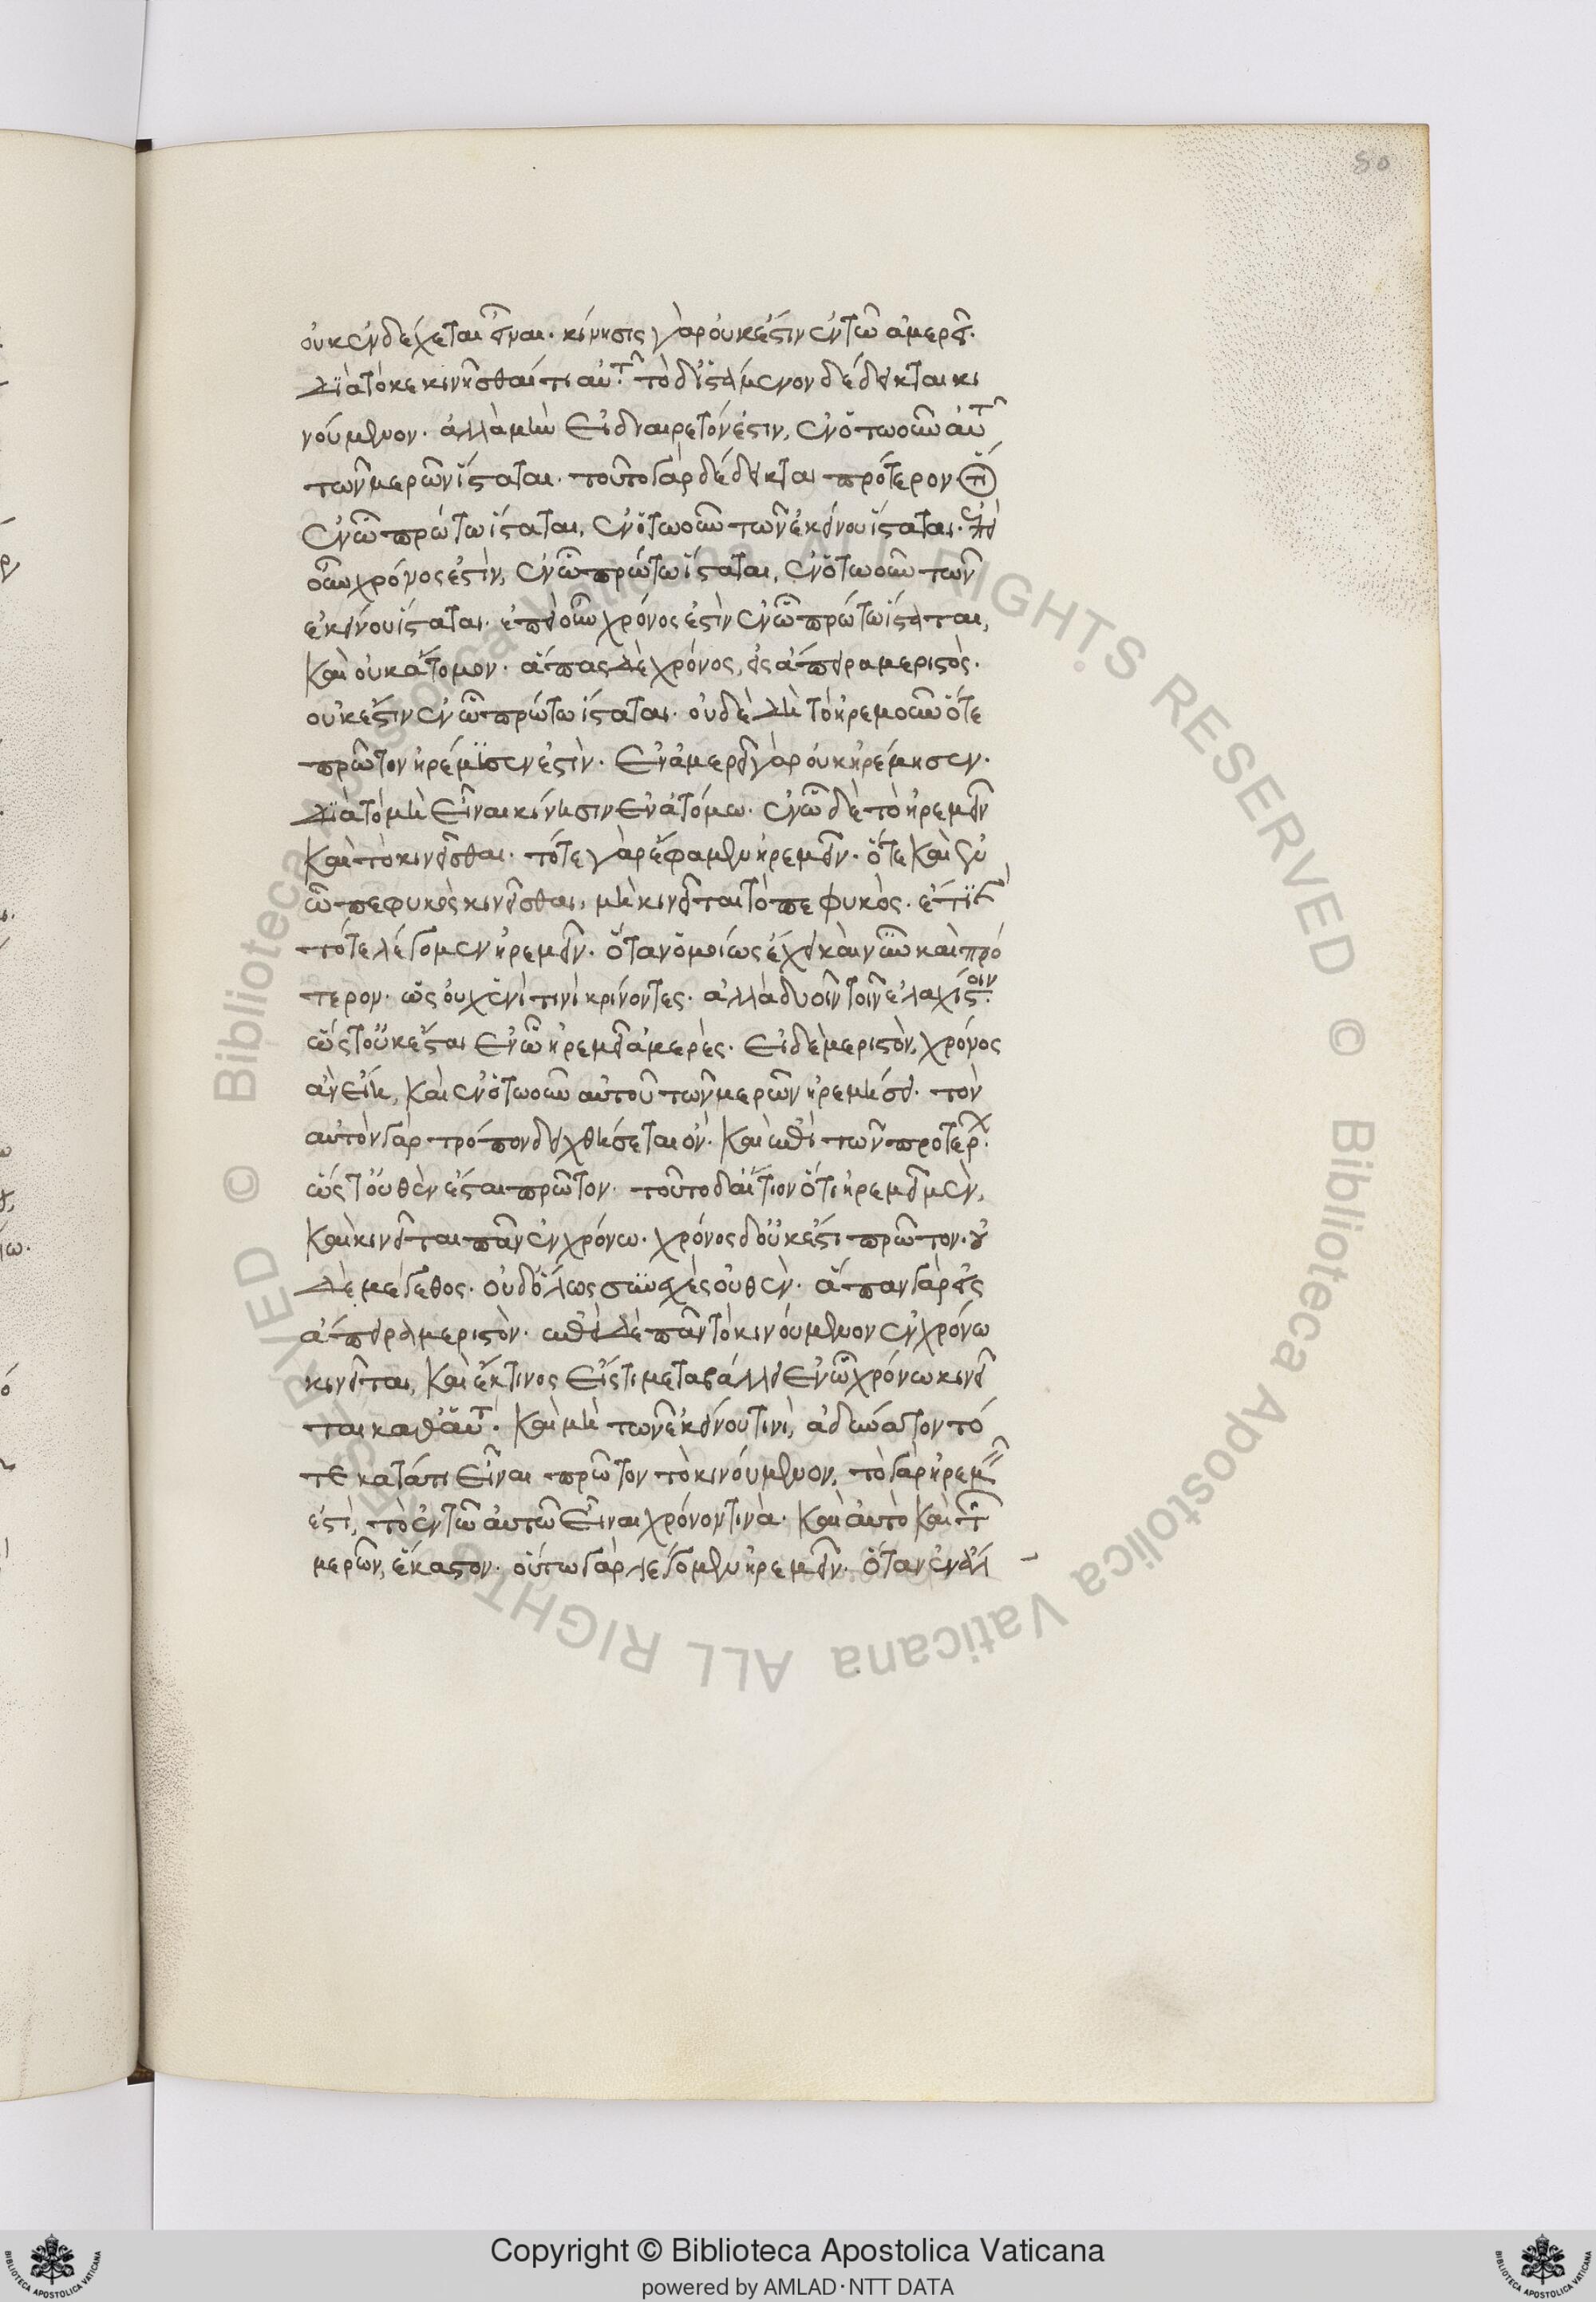 80
οὐκ ἐνδέχεται εἶναι. κίνησις γὰρ οὐκ ἔστιν ἐν τῷ ἀμερεῖ.
διὰ τὸ κεκινῆσθαί τι αὐτ τὸ δ' ἱστάμενον δέδεικται κι
νούμενον. ἀλλὰ μὴν εἰ διαιρετόν ἐστιν, ἐν ὁτωοῦν αὐτ
τῶν μερῶν ἵσταται. τοῦτο γὰρ δέδεικται πρότερον
ἐν ᾧ πρώτω ἵσταται, ἐν ὁτωοῦν τῶν ἐκείνου ἵσταται. ἐπεὶ
οὖν χρόνος ἐστὶν, ἐν ᾧ πρώτω ἵσταται, ἐν ὁτωοῦν τῶν
ἐκείνου ἵσταται. ἐπεὶ οὖν χρόνος ἐστὶν ἐν ᾧ πρώτω ἵσταται,
καὶ οὐκ ἄτομον. ἅπας δὲ χρόνος, εἰς ἄπειρα μεριστὸς.
οὐκ ἔστιν ἐν ᾧ πρώτω ἵσταται. οὐδὲ δὴ τὸ ἠρεμοῦν ὅτε
πρῶτον ἠρέμισεν ἐστὶν. ἐν ἀμερεῖ γὰρ οὐκ ἠρέμησεν.
διὰ τὸ μὴ εἶναι κίνησιν ἐν ἀτόμω. ἐν ᾧ δὲ τὸ ἠρεμεῖν
καὶ τὸ κινεῖσθαι. τότε γὰρ ἔφαμεν ἠρεμεῖν. ὅτε καὶ ἐν
ᾧ πεφυκὸς κινεῖσθαι, μὴ κινεῖται τὸ πεφυκὸς. ἔτι καὶ
τότε λέγομεν ἠρεμεῖν. ὅταν ὁμοίως ἔχει καὶ νῦν καὶ πρό
τερον. ὡς οὐχ ἑνὶ τινὶ κρίνοντες. ἀλλὰ δυοῖν τοῖν ἐλαχίστοιν
ὥστ' οὐκ ἔσται ἐν ᾧ ἠρεμεῖ ἀμερὲς. εἰ δὲ μεριστὸν, χρόνος
ἂν εἴη, καὶ ἐν ὁτωοῦν αὐτοῦ τῶν μερῶν ἠρεμήσει. τὸν
αὐτὸν γὰρ τρόπον δειχθήσεται ὃν. καὶ ἐπὶ τῶν προτέρ
ὥστ' οὐθὲν ἔσται πρῶτον. τοῦτο δ' αἴτιον ὅτι ἠρεμεῖ μὲν,
καὶ κινεῖται πᾶν ἐν χρόνω. χρόνος δ' οὐκ ἔστι πρῶτον. οὐ
δὲ μέγεθος. οὐδ' ὅλως συνεχὲς οὐθὲν. ἅπαν γὰρ εἰς
ἄπειρα μεριστὸν. ἐπεὶ δὲ πᾶν τὸ κινούμενον ἐν χρόνω
κινεῖται, καὶ ἔκ τινος εἴς τι μεταβάλλει ἐν ᾧ χρόνω κινεῖ
ται καθ' αὑτ. καὶ μὴ τῶν ἐκείνου τινὶ, ἀδύνατον τό
τε κατά τι εἶναι πρῶτον τὸ κινούμενον, τὸ γὰρ ἠρεμεῖν
ἐστὶ, τὸ ἐν τῷ αὐτῷ εἶναι χρόνον τινὰ. καὶ αὐτὸ καὶ τῶν
μερῶν, ἕκαστον. οὕτω γὰρ λέγομεν ἠρεμεῖν. ὅταν ἐν